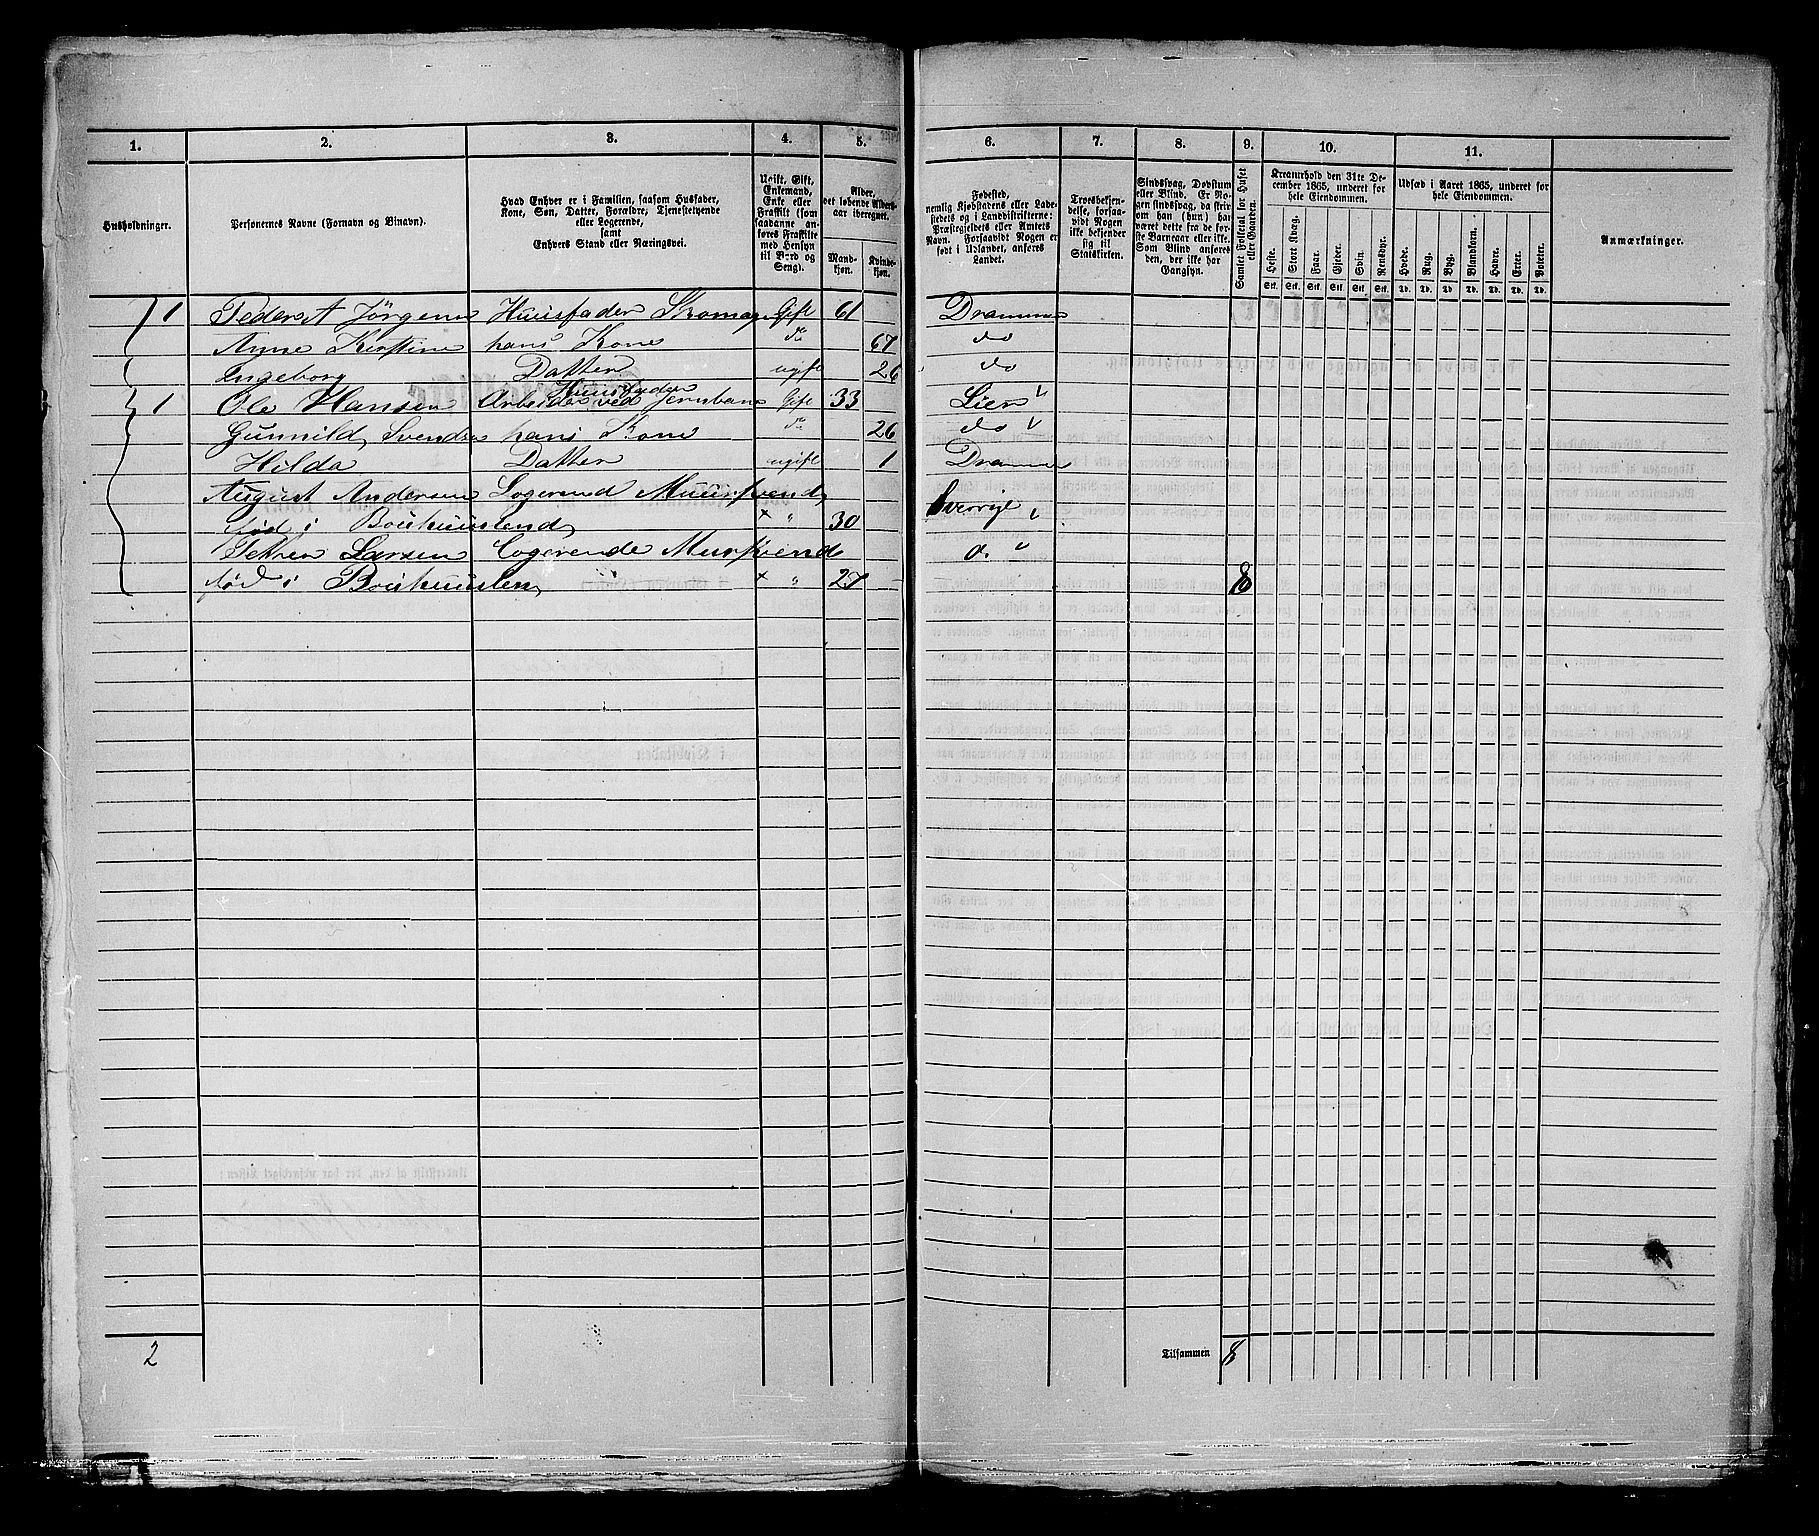 1. 2. 3. 4. 5. 6. 7. 8. 9. 10. 11.
Husholdninger.
Personernes Navne (Fornavn og Binavn).
Hvad Enhver er i Familien, saasom Husfader,
Kone, Søn, Datter, Forældre, Tjenestetyende
eller Logerende,
samt
Enhvers Stand eller Næringsvei.
Ugift, Gift,
Enkemand,
Enke eller
Fraskilt (som
saadanne an-
føres Fraskilte
med Hensyn
til Bord og
Seng).
Alder,
det løbende Alders-
aar iberegnet.
Mand-
kjøn.
Kvinde-
kjøn.
Fødested,
nemlig Kjøbstadens eller Lade-
stedets og i Landdistrikterne:
Præstegjeldets eller Amtets
Navn. Forsaavidt Nogen er
født i Udlandet, anføres
Landet.
Troesbekjen-
delse, forsaa-
vidt Nogen
ikke bekjender
sig til
Statskirken.
Sindssvag, Døvstum
eller Blind. Er No-
gen sindssvag, da skri-
ves om han (hun) har
været dette fra de før-
ste Barneaar eller ikke.
Som Blind anføres
den, der ikke har
Gangsyn.
Samlet Folketal for Huset
eller Gaarden.
Kreaturhold den 31te De-
cember 1865, underet for
hele Eiendommen.
Heste. Stort Kvæg. Faar. Gjeder. Svin. Rensdyr.
Stk. Stk. Stk. Stk. Stk. Stk.
Udsæd i Aaret 1865, underet for
hele Eiendommen.
Hvede. Rug. Byg. Blandkorn. Havre. Erter. Poteter.
Td. Td. Td. Td. Td. Td. Td.
Anmærkninger.
1 Peder A Jörgens Huusfader Skomag Gift 61 Drammen
Anne Kirstine hans Kone do 67 do
Ingeborg Datter ugift 26 do
Huusfader
1 Ole Hansen Arbeider ved Jernbane Gift 33 Lier
Gunnild Svends hans Kone do 26 do
Hilda Datter ugift 1 Dramen
August Andersen Logerend Muursvend
född i Bouhuuslend × " 30 Sverrige
Petter Larsen Logerende Mursvend d. "
född i Bouhuuslen × " 27 8
2 Tilsammen 8